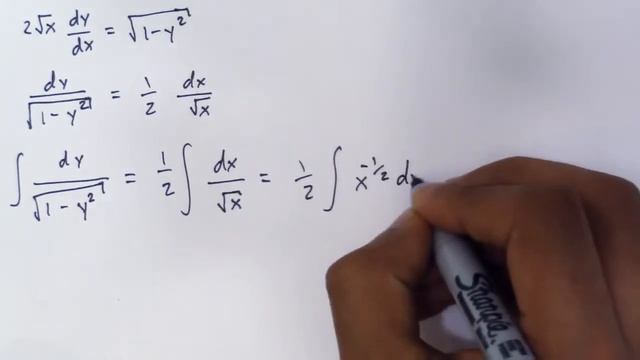 2√x dy/dx = √(1-y²)
dy/√(1-y²) = 1/2 dx/√x
∫ dy/√(1-y²) = 1/2 ∫ dx/√x = 1/2 ∫ x^(-1/2) d
Sharpie